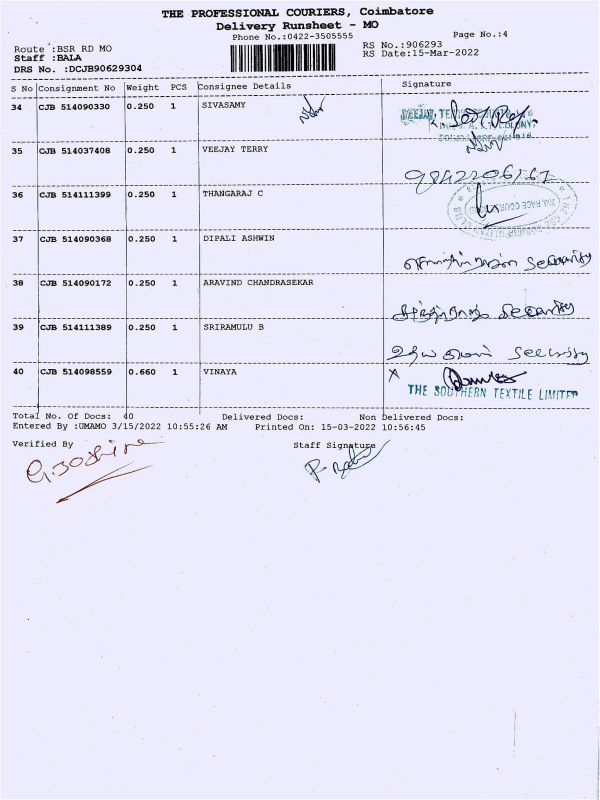 THE PROFESSIONAL COURIERS, Coimbatore
Delivery Runsheet - MO
Phone No.:0422-3505555
Page No.:4
Route :BSR RD MO
RS No.:906293
Staff :BALA
RS Date:15-Mar-2022
DRS No. :DCJB90629304
S No Consignment No Weight PCS Consignee Details Signature
34 CJB 514090330 0.250 1 SIVASAMY
35 CJB 514037408 0.250 1 VEEJAY TERRY
36 CJB 514111399 0.250 1 THANGARAJ C
37 CJB 514090368 0.250 1 DIPALI ASHWIN
security
38 CJB 514090172 0.250 1 ARAVIND CHANDRASEKAR
security
39 CJB 514111389 0.250 1 SRIRAMULU B
security
40 CJB 514098559 0.660 1 VINAYA
THE SOUTHERN TEXTILE LIMITED
Total No. Of Docs: 40 Delivered Docs: Non Delivered Docs:
Entered By :UMAMO 3/15/2022 10:55:26 AM Printed On: 15-03-2022 10:56:45
Verified By Staff Signature